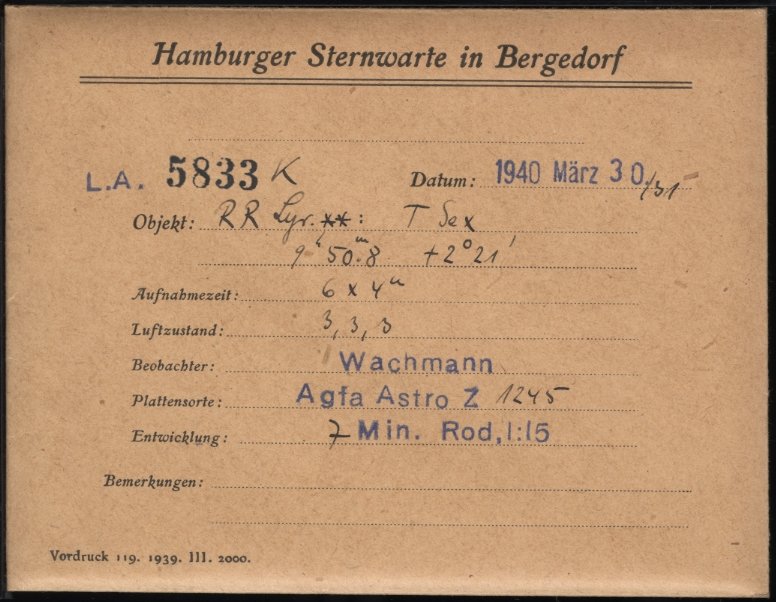 Hamburger Sternwarte in Bergedorf
L.A. 5833 K Datum: 1940 März 30./31
Objekt: RR Lyr. **: T Sex
9ʰ 50ᵐ.8 +2° 21'
Aufnahmezeit: 6 x 4ᵐ
Luftzustand: 3, 3, 3
Beobachter: Wachmann
Plattensorte: Agfa Astro Z 1245
Entwicklung: 7 Min. Rod, 1:15
Bemerkungen:
Vordruck 119. 1939. III. 2000.